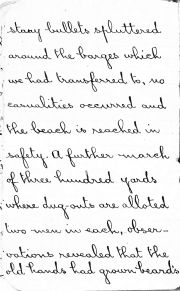 stray bullets spluttered
around the barges which
we had transferred to, no
casualities occurred and
the beach is reached in
safety. A further march
of three hundred yards
where dug-outs are alloted
two men in each, obser-
vations revealed that the
old hands had grown beards